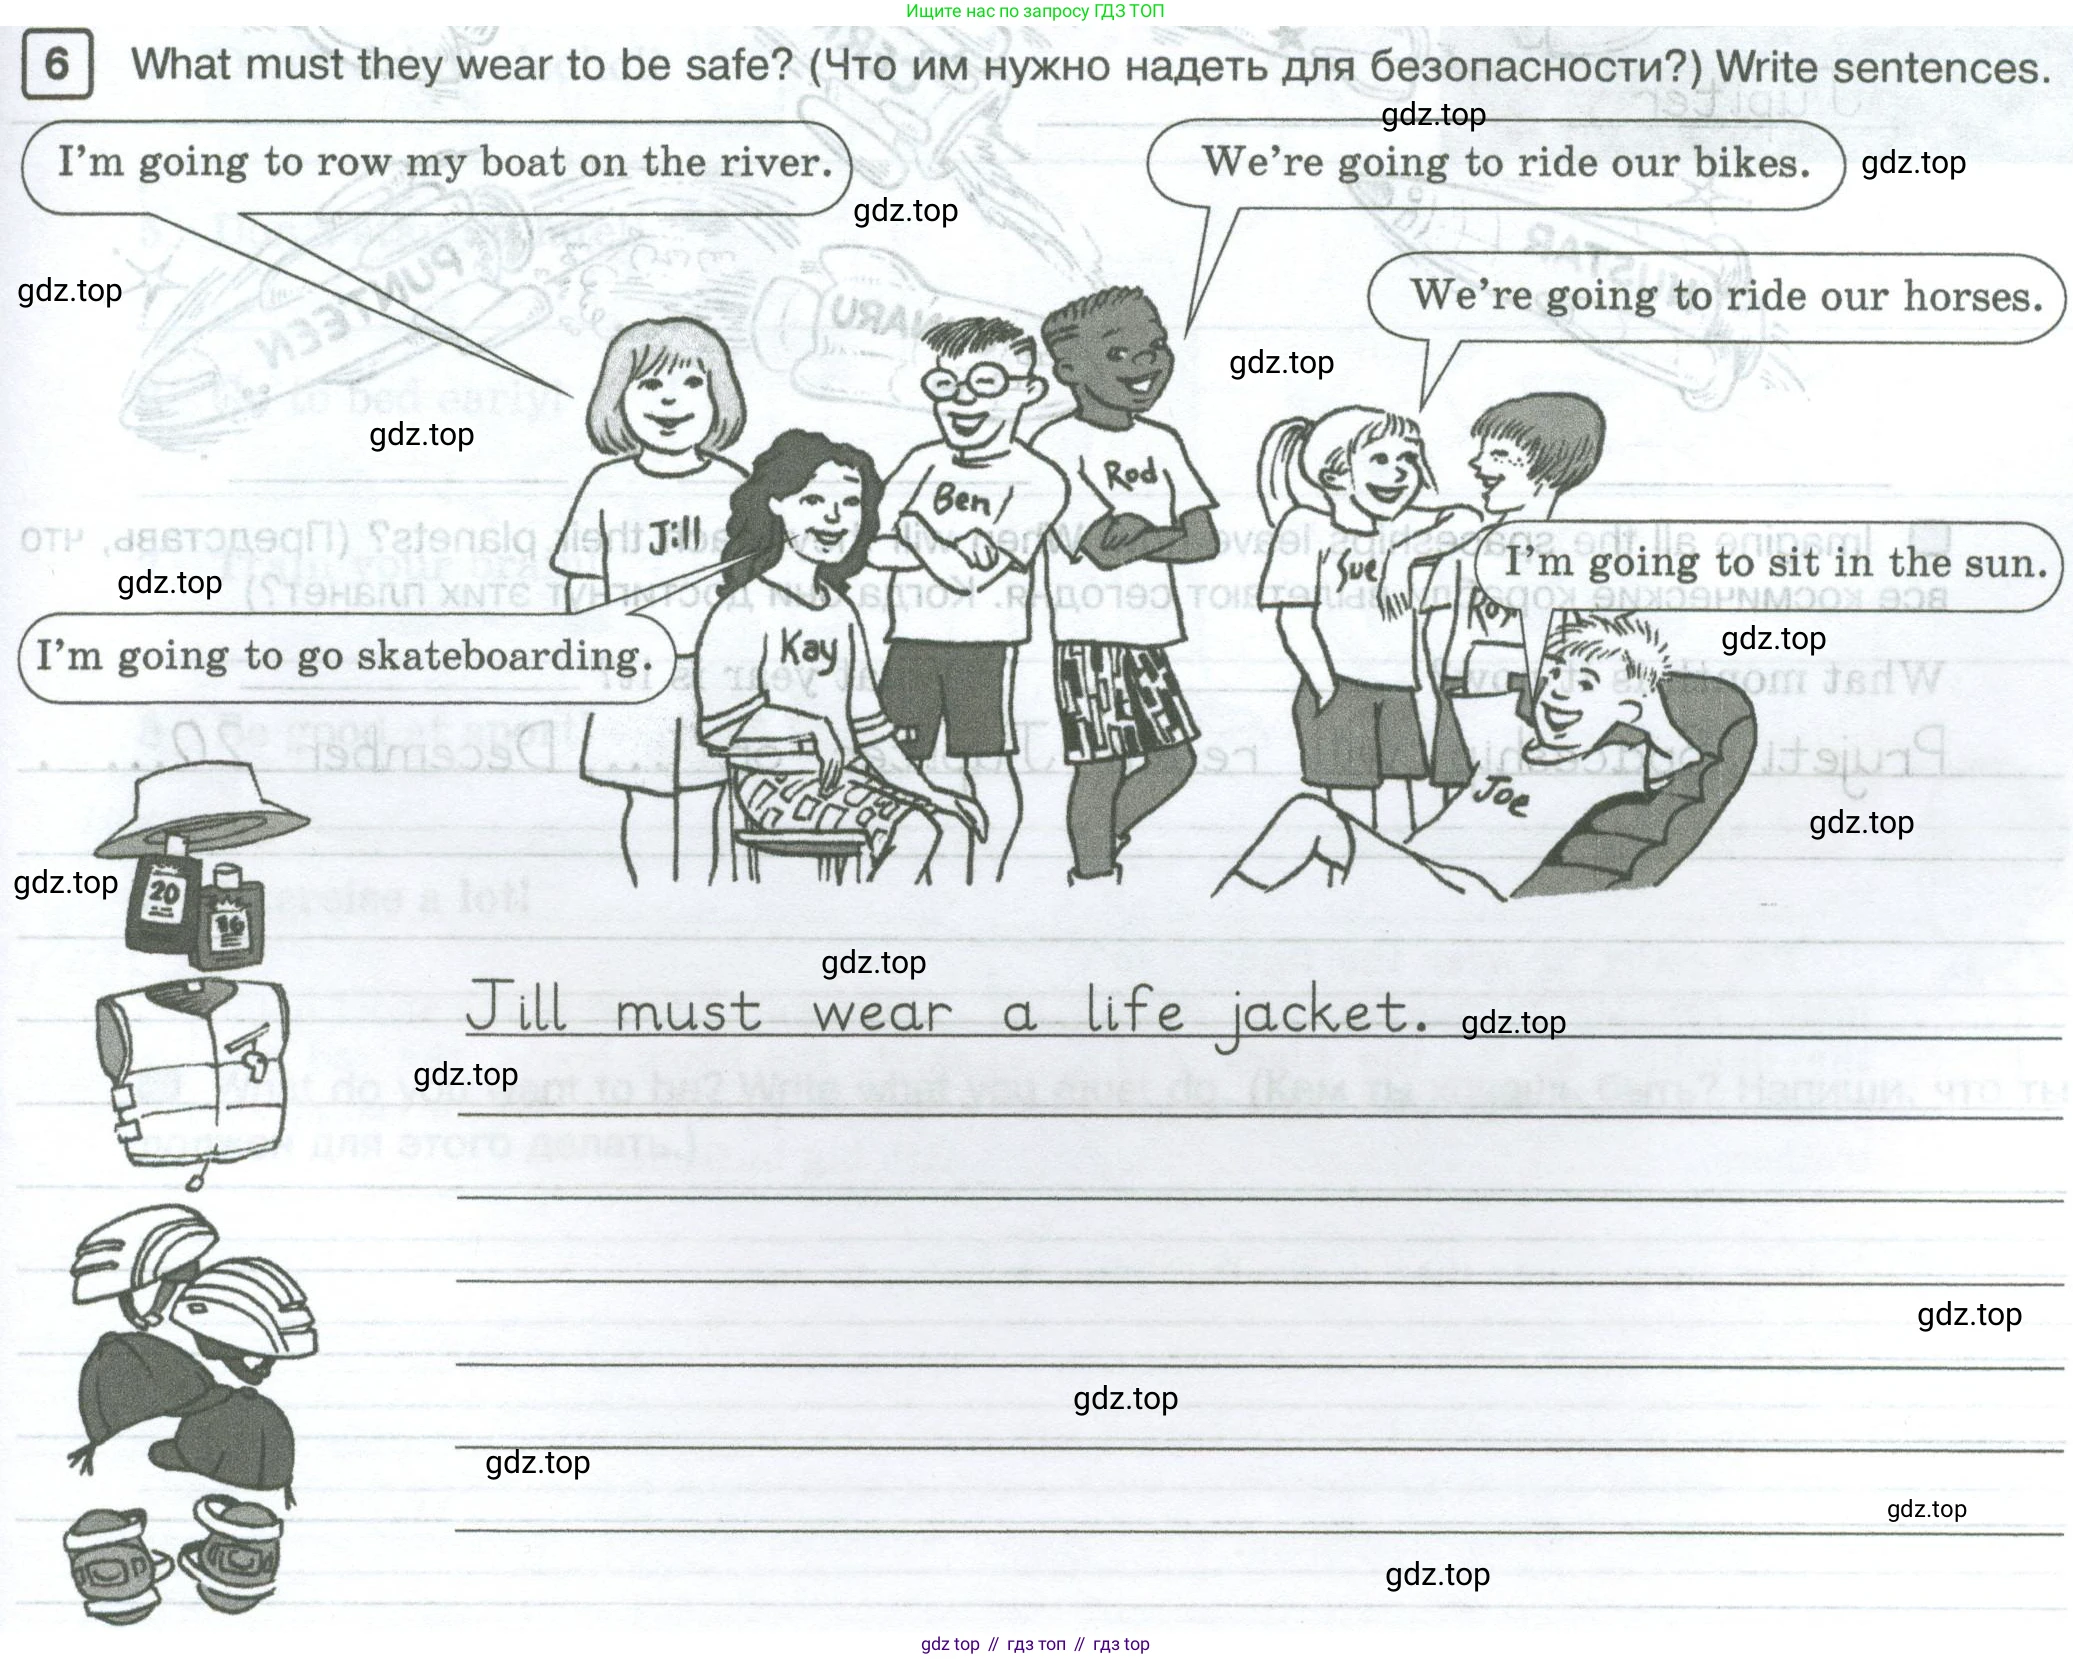 Ищите нас по запросу ГДЗ ТОП
6 What must they wear to be safe? (Что им нужно надеть для безопасности?) Write sentences.
gdz.top
I'm going to row my boat on the river.
We're going to ride our bikes.
gdz.top
gdz.top
gdz.top
We're going to ride our horses.
gdz.top
gdz.top
Rod
Ben
Jill
Sue
I'm going to sit in the sun.
gdz.top
Roy
gdz.top
Kay
I'm going to go skateboarding.
Joe
gdz.top
gdz.top
20
16
gdz.top
Jill must wear a life jacket.
gdz.top
gdz.top
gdz.top
gdz.top
gdz.top
gdz.top
gdz.top
gdz top // гдз топ // гдз top